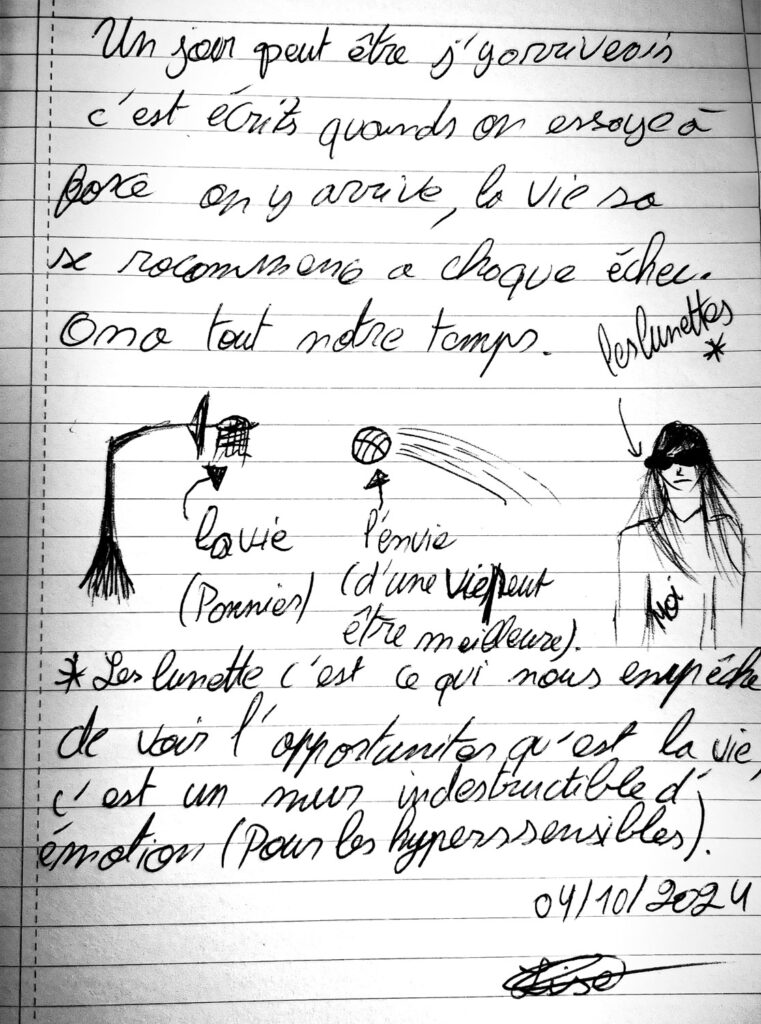 Un jour peut être j'y arriverais
c'est écrits quands on essaye à
on y arrive, la vie sa
se recommence a chaque échec.
On a tout notre temps.
les lunettes
*
la vie
(Pannier)
l'envie
(d'une vie peut
être meilleure).
Moi
* Les lunette c'est ce qui nous empêche
de voir l'opportuniter qu'est la vie,
c'est un mur indestructible d'
émotion (Pour les hyperssensibles).
04/10/2024
Lise